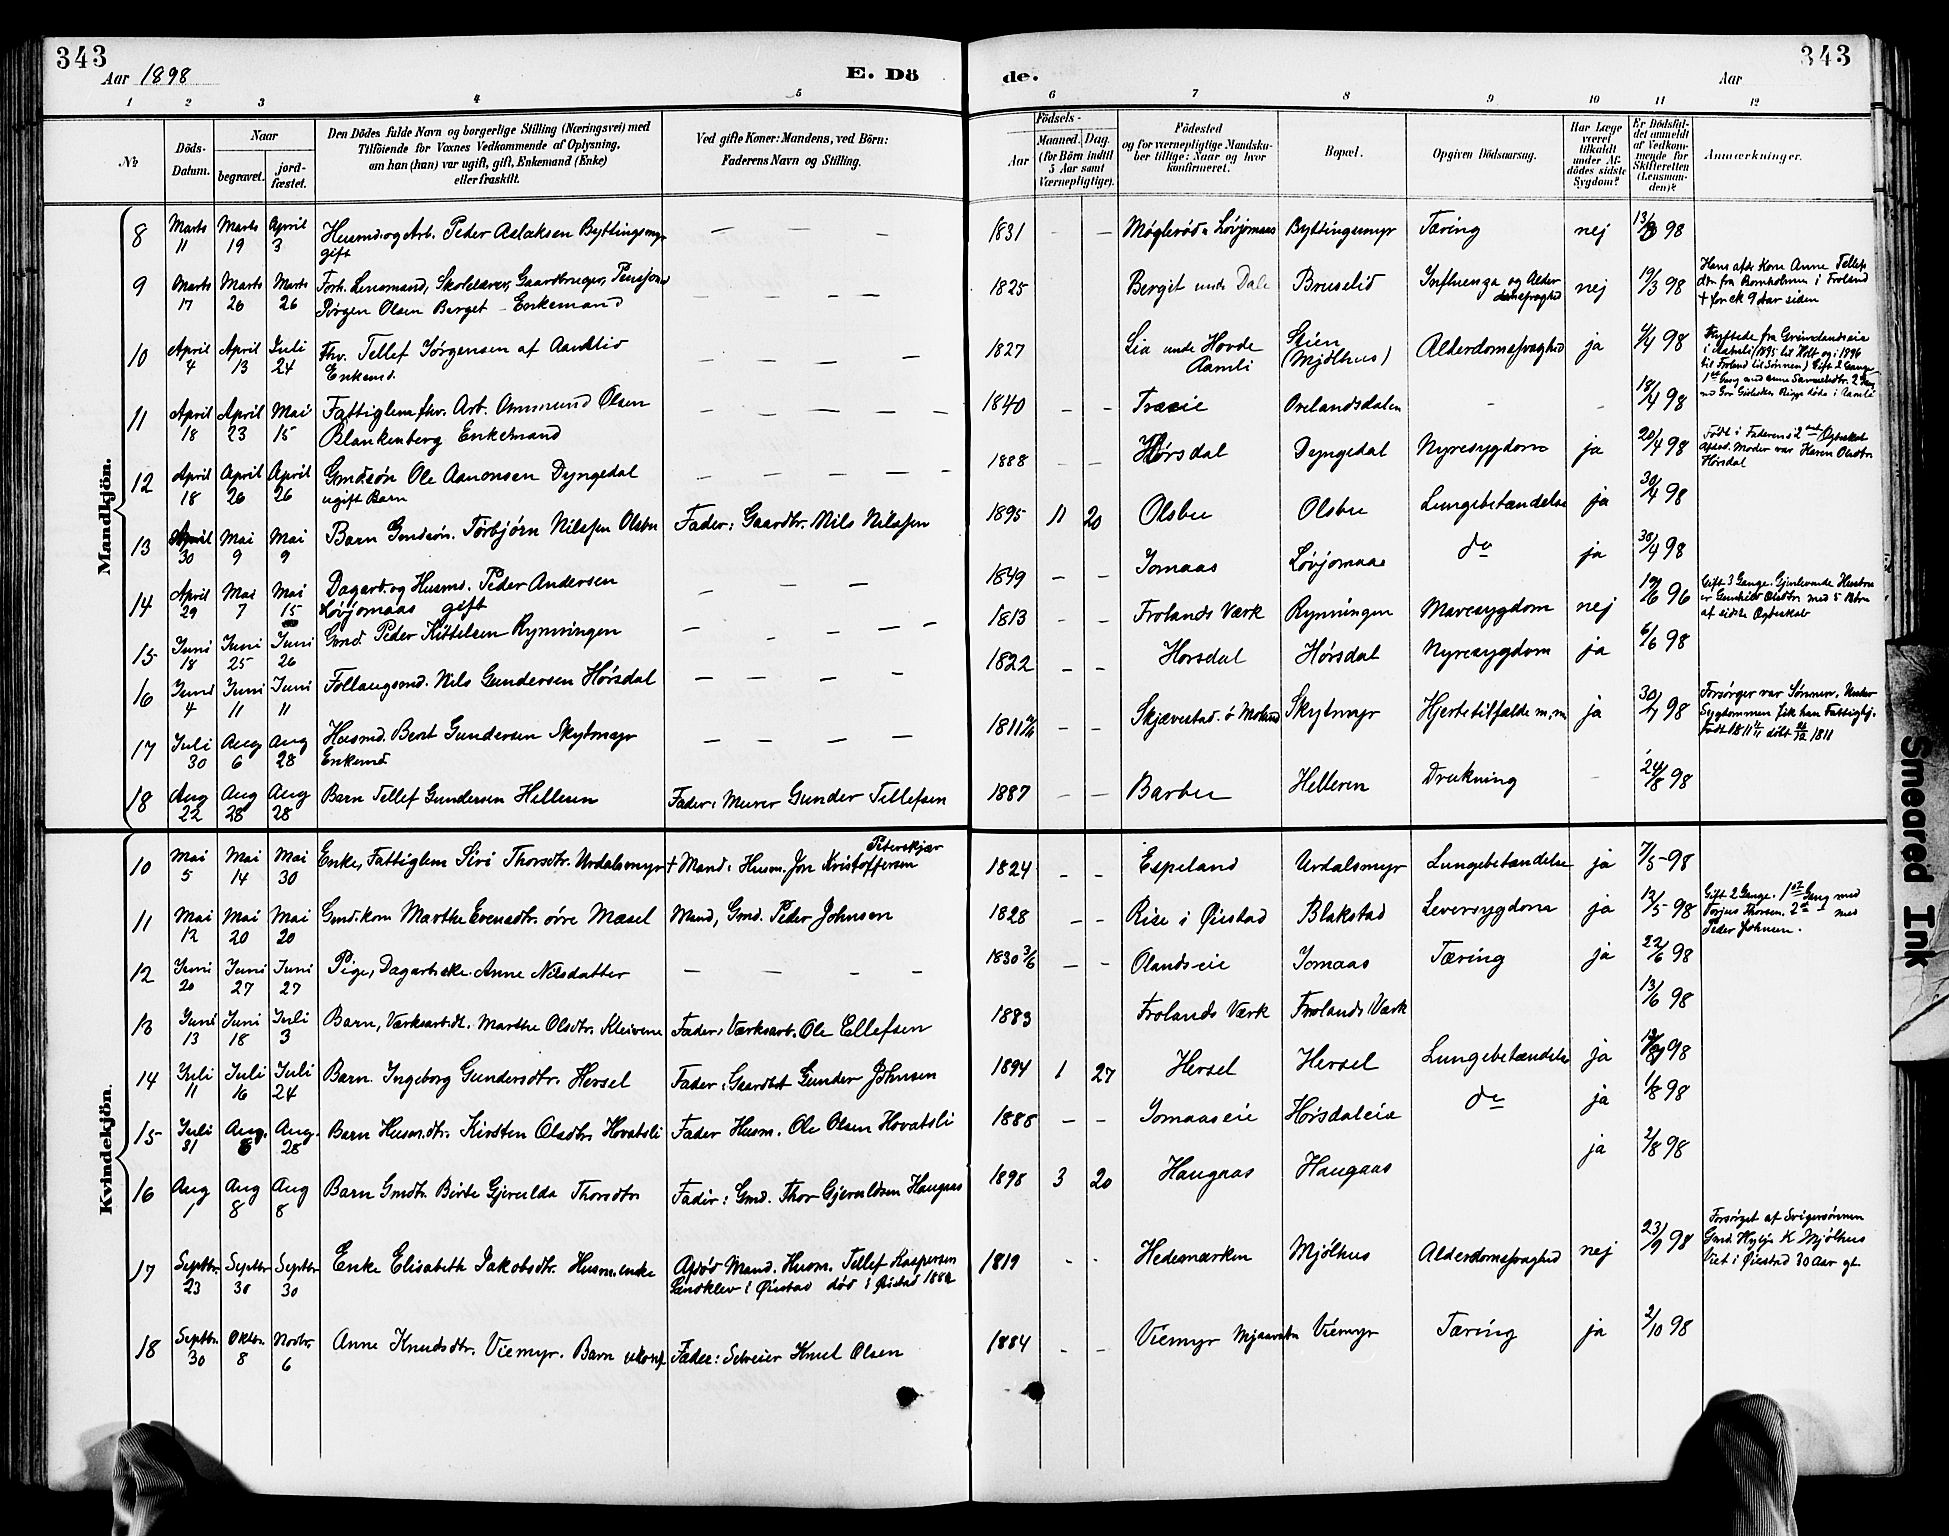 343
Aar 1898
E. Dö
de.
Aar
343
1 2 3 4 5 6 7 8 9 10 11 12
No
Döds-Datum.
Naar
begravet.
jordfæstet.
Den Dödes fulde Navn og borgerlige Stilling (Næringsvei) med
Tilföiende for Voxnes Vedkommende af Oplysning,
om han (hun) var ugift, gift, Enkemand (Enke)
eller fraskilt.
Ved gifte Koner: Mandens, ved Börn:
Faderens Navn og Stilling.
Födsels-
Aar
Maaned. Dag.
(for Börn indtil
5 Aar samt
Værnepligtige).
Födested
og for værnepligtige Mandskaber tillige: Naar og hvor
konfirmeret.
Bopæl.
Opgiven Dödsaarsag.
Har Læge
været
tilkaldt
under Afdödes sidste
Sygdom?
Er Dödsfaldet anmeldt
af Vedkommende for
Skifteretten
(Lensmanden)?
Anmærkninger.
Mandkjön.
8 Marts 11 Marts 19 April 3 Husmd. og Arb. Peder Aslaksen Byttingsmyr gift — — — 1831 — — Møglerød u Løvjomaas Byttingsmyr Tæring nej 13/3 98
9 Marts 17 Marts 26 Marts 26 Forh. Lensmand, Skolelærer, Gaardbruger, Pensjonist
Jörgen Olsen Berget - Enkemand — — — 1825 Berget under Dale Bruselid Influenza og Alderdomsfraghed nej 19/3 98 Hans afdøde Kone Anne Tellefs
dtr fra Bornholmen i Froland
+ for ck 9 Aar siden
10 April 4 April 13 Juli 24 Fhv. Tellef Jörgensen af Aandlid
Enkemd. — — — — 1827 Lia unde Hovde Aamli Stien (Mjölhus) Alderdomsfraghed ja 4/4 98 Flyttede fra Grimelandseie
i Aamli 1895 til Holt og i 1896
til Froland til Sønnen) Gift 2 Gange
11 April 18 April 23 Mai 15 Fattiglem fhv. Arb. Ommund Olsen
Blankenberg Enkemand — — — — 1840 — — Træeie Ovelandsdalen - - 18/4 98
12 April 18 April 26 April 26 Gmdsøn Ole Aanonsen Dyngedal
ugift Barn — — — — 1888 — — Hörsdal Dyngedal Nyresygdom ja 20/4 98 Født i Faderens 2det Ægteskab
Afdød. Moder var Karen Olsdtr
Hörsdal
13 April 30 Mai 9 Mai 9 Barn Gmdsøn. Torbjörn Nilssen Olsbu Fader: Gaardbr. Nils Nilssen 1895 11 20 Olsbu Olsbu Lungebetændelse ja 30/4 98
14 April 29 Mai 7 Mai 15 Dagarb. og Husmd. Peder Andersen
Løvjomaas gift — — — 1849 — — Jomaas Løvjomaas do ja 30/4 98
15 Juni 18 Juni 25 Juni 26 Gmd Peder Kittelsen Rynningen — — — — 1813 Frolands Værk Rynningen Mavesygdom nej 19/6 96 Gift 3 Gange. Gjenlevende Hustru
er Gunhild Olsdtr med 5 Børn
af sidste Ægteskab
16 Juni 4 Juni 11 Juni 11 Föllaugsmd. Nils Gundersen Hörsdal — — — — 1822 — — Horsdal Hörsdal Nyresygdom ja 6/6 98
17 Juli 30 Aug 6 Aug 28 Husmd. Bent Gundersen Skytmyr
Enkemd — — — — 1811 — — Skjævestad. ö Moland Skytmyr Hjertetilfælde m.m ja 30/7 98 Forsörger var Sønnen. Under
Sygdommen fik han Fattighj.
født 1811 døbt 1811
18 Aug 22 Aug 28 Aug 28 Barn Tellef Gundersen Helleren Fader: Murer Gunder Tellefsen 1887 — — Barbu Helleren Drukning - 24/8 98
Kvindekjön.
10 Mai 5 Mai 14 Mai 30 Enke, Fattiglem Siri Thorsdtr. Uvdalsmyr + Mand: Husm. Jon Kristoffersen Peterskjær 1824 Espeland Uvdalsmyr Lungebetændelse ja 7/5-98
11 Mai 12 Mai 20 Mai 20 Gmd.kone Marthe Evensdtr. øvre Mæsel Mand, Gmd. Peder Johnsen 1828 — — Rise i Øiestad Blakstad Leversygdom ja 12/5-98 Gift 2 Gange. 1ste Gang med
Torjus Thorsen. 2det — med
Peder Johnsen.
12 Juni 20 Juni 27 Juni 27 Pige, Dagarbeske Anne Nilsdatter — — - - 1830 3/6 — — Olandseie Jomaas Tæring ja 22/6 98
13 Juni 13 Juni 18 Juli 3 Barn, Værksarb.dt. Marthe Olsdtr. Kleivene Fader: Værksarb. Ole Ellefsen 1883 Frolands Værk Frolands Værk 13/6 98
14 Juli 11 Juli 16 Juli 24 Barn. Ingeborg Gundersdtr. Hersel Fader: Gaardbr Gunder Johnsen 1894 1 27 Hersel Hersel Lungebetændelse ja 98
15 Juli 31 Aug. 6 Aug. 28 Barn Husm.dtr. Kirsten Olsdtr Hovatsli Fader Husm. Ole Olsen Hovatsli 1888 — — Jomaaseie Hörsdaleie do ja 1/8 98
16 Aug 1 Aug 8 Aug 8 Barn Gmdtr. Birte Gjerulda Thorsdtr Fader: Gmd. Thor Gjeruldsen Haugaas 1898 3 20 Haugaas Haugaas ja 2/8 98
17 Septbr 23 Septbr 30 Septbr 30 Enke Elisabeth Jakobsdtr. Husm.enke Afdöd Mand. Husm. Tellef Kaspersen
Sandklev i Øiestad död i Øiestad 1882 1819 - - Hedemarken Mjölhus Alderdomsfraghed nej 23/9 98 Forsørget af Svigersønnen
Gmd. K Mjölhus
Viet i Øiestad 30 Aar gl.
18 Septbr. 30 Oktbr. 8 Novbr. 6 Anne Knudsdtr. Viemyr. Barn ukonf Fader: Selveier Knud Olsen 1884 — — Viemyr Mjaavatn Viemyr Tæring ja 2/10 98
Smeared Ink